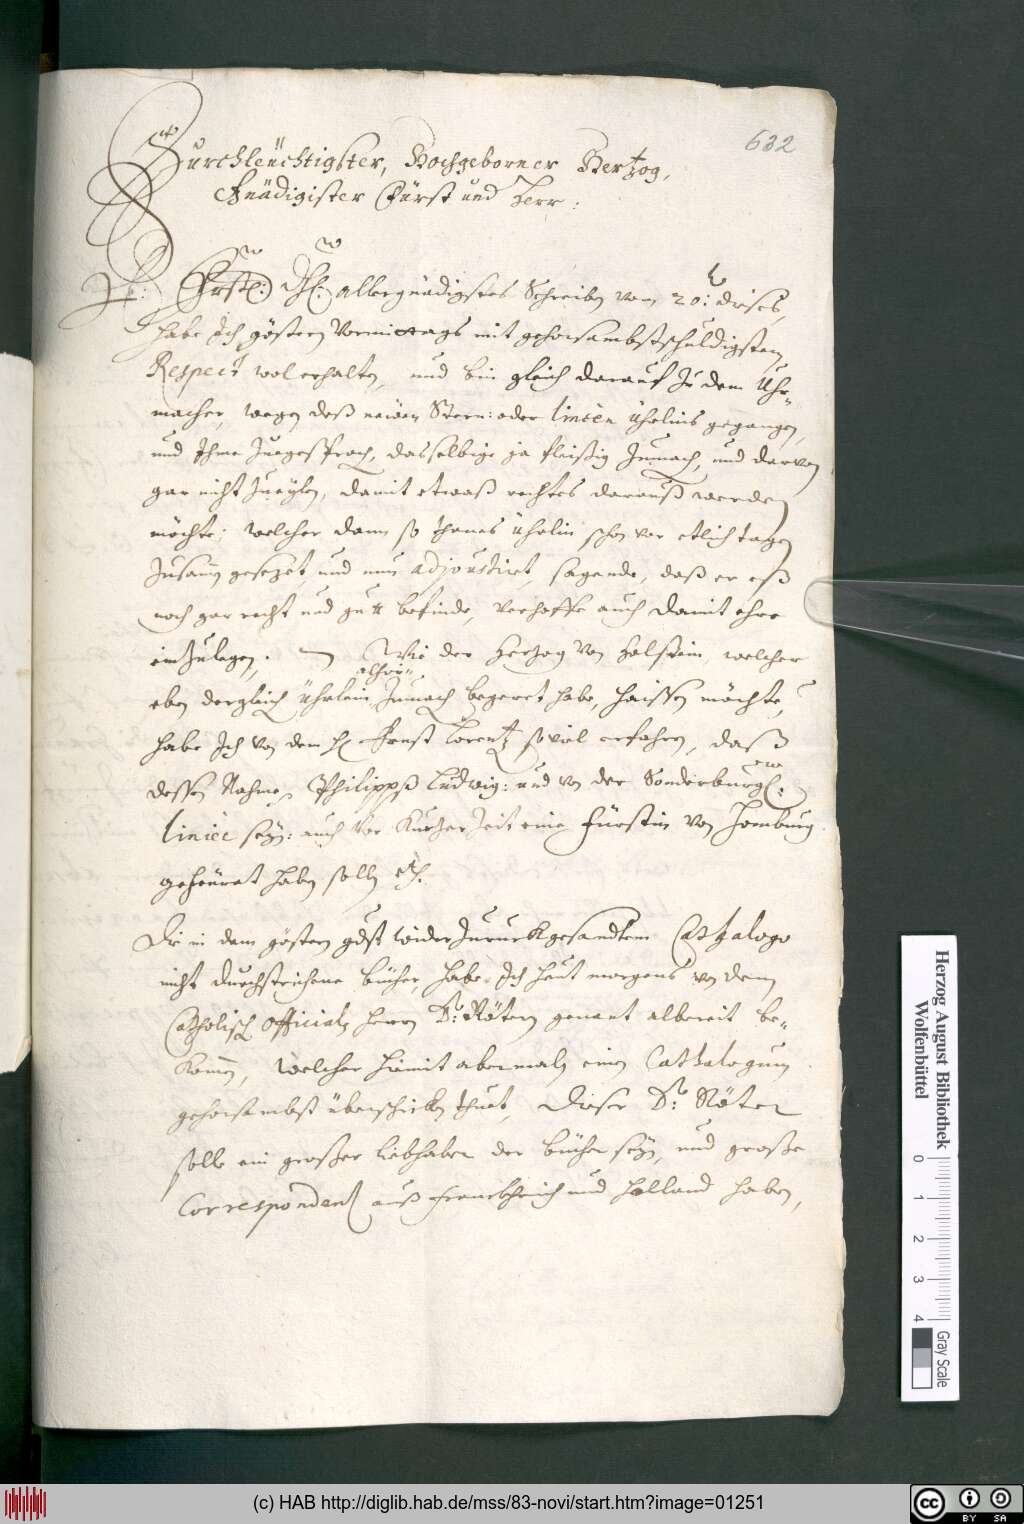 632
Durchleüchtigster, Hochgeborner Hertzog,
Gnädigister Fürst und Herr:
E: Fürstl: Dhl: allergnädigstes Schreiben vom 20: dises,
habe Ich gösteren Vormittags mit gehorsambstschuldigsten
Respect wol erhalten, und bin gleich darauf zu dem Uhr-
macher, wegen deß newen Stern: oder linien ührlins gegangen,
und Ihme zuegesprochen, dasselbige ja fleißig zumachen, und darvon
gar nicht zueylen, damit etwaß rechtes darauß werden
möchte; welcher dann so thanes ührlin schon vor etlich tagen
zusamen gesezet, und nun adjoustiret, sagende, daß er eß
noch gar recht und gutt befinde, verhoffe auch damit ehre
einzulegen. Wie der Herzog von Holstein, welcher
alhie
eben dergleichen ührlein zumachen begeret habe, haissen möchte,
habe Ich von dem H. Ernst Lorentz soviel erfahren, daß
dessen Nahme Philippß Ludwig: und von der Sonderburgl:
liniee seye: auch vor kurzer Zeit eine Fürstin von Homburg
geheürat haben solle etc.
Die in dem gösteren gdst wider zuruckgesandtem Cathalogo
nicht durchstrichene bücher, habe Ich heut morgens von dem
Catholischen Officialn Herrn Dr: Röten genant albereit be-
kommen, welcher hiemit abermals einen Cathalogum
gehorsambst überschicken thuet, Diser Dr: Röten
solle ein großer liebhaber der bücher seyn, und große
Correspondenz auß Franckhreich und Holland haben,
Herzog August Bibliothek
Wolfenbüttel
0 1 2 3 4
Gray Scale
(c) HAB http://diglib.hab.de/mss/83-novi/start.htm?image=01251
cc BY SA